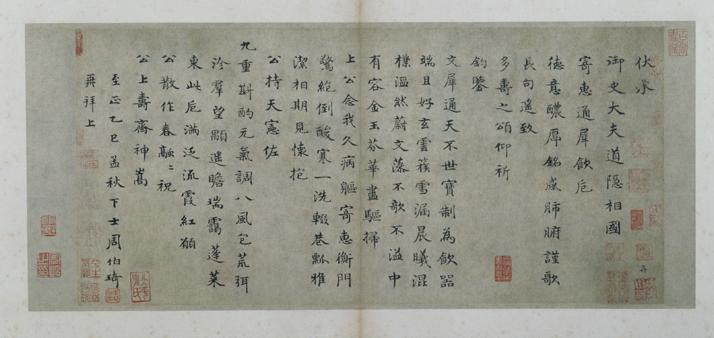 伏承
御史大夫道隐相國
寄惠通犀飲卮
德意醲厚銘感肺腑謹歌
長句遥致
多壽之頌仰祈
鈞鑒
文犀通天不世寶制為飲器
端且好玄雲蔟雪漏晨曦混
樸溫然蔚文藻不歌不溢中
有容金玉芬華盡驅掃
上公念我久病軀寄惠衡門
驚絕倒酸寒一洗輟巷瓢雅
潔相期見懷抱
公持天憲佐
九重斟酌元氣調八風包荒弭
沴羣望顒進瞻瑞靄蓬萊
東此卮滿泛流霞紅願
公散作春融〻祝
公上壽齊神嵩
至正乙巳孟秋下士周伯琦
再拜上